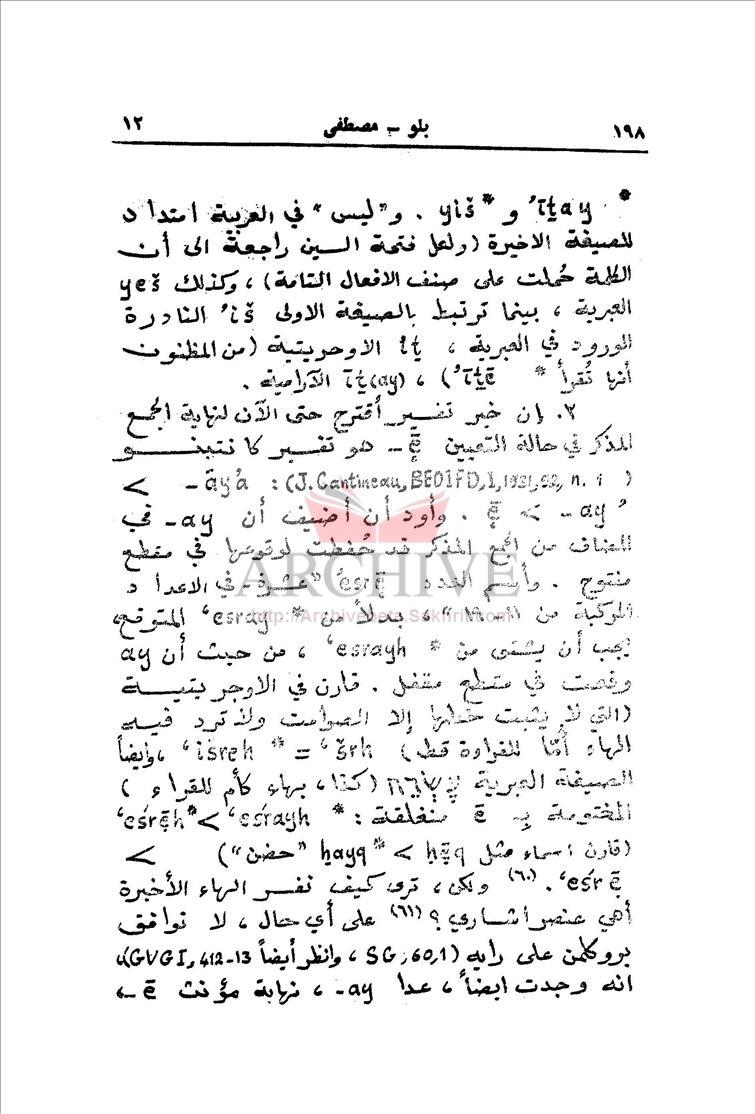 ١٩٨ بلو - مصطفى ١٢
* ʾīṯay و * yiš . و "ليس" في العربية امتداد
للصيغة الاخيرة (ولعل فتحة السين راجعة الى أن
الكلمة حُملت على صنف الافعال التامة) ، وكذلك yeš
العبرية ، بينما ترتبط بالصيغة الاولى ʾiš النادرة
الورود في العبرية ، iṯ الاوجريتية (من المظنون
أنها تُقرأ * ʾīṯē) ، īṯ(ay) الآرامية .
٢. إن خير تفسير أقترح حتى الآن لنهاية الجمع
المذكر في حالة التعيين -ē هو تفسير كانتينو
(J. Cantineau, BEOIFD, I, 1931, 92, n. 1) : -āyʾa >
-ay > ē . وأود أن أضيف أن -ay في
المضاف من الجمع المذكر قد حُفظت لوقوعها في مقطع
مفتوح . وأسم العدد ʿesrē "عشرة - في الاعداد
المركبة من ١١ - ١٩" ، بدلاً من * ʿesray المتوقع،
يجب أن يشتق من * ʿesrayh ، من حيث أن ay
وقعت في مقطع مقفل . قارن في الاوجريتية
(التي لا يثبت خطها إلا الصوامت ولا ترد فيه
الهاء أمّا للقراءة قط) ʿšrh = * ʿišreh ، وايضاً
الصيغة العبرية (كذا ، بهاء كأم للقراءة)
المختومة بـ ē منغلقة : * ʿeśrayh > * ʿeśrēh
(قارن اسماء مثل ḥēq < * ḥayq "حضن") >
ʿeśrē . (٦٠) ولكن ، ترى كيف نفسر الهاء الأخيرة
أهي عنصر اشاري ؟ (٦١) على أي حال ، لا نوافق
بروكلمن على رايه (SG, 60,1 ، وانظر أيضاً GVGI, 412-13)،
انه وجدت ايضاً ، عدا -ay ، نهاية مؤنث -ē ،